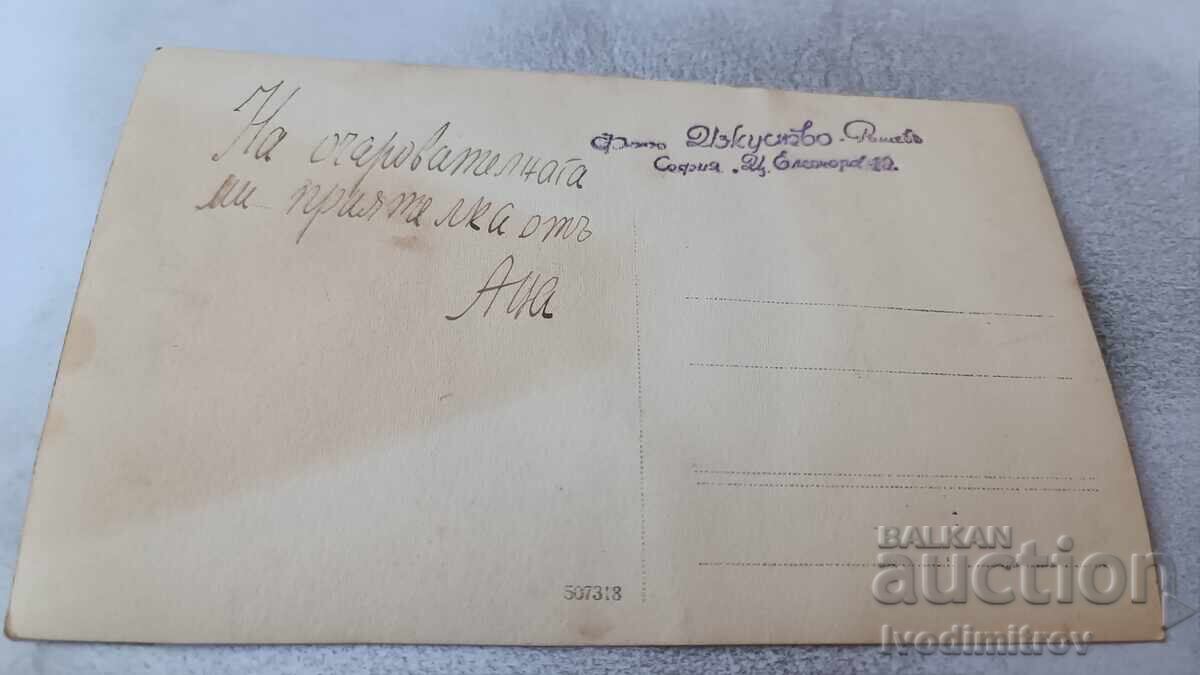 На очарователната
ми приятелка отъ
Ана
Фото Изкуство - Рашевъ
София „Ц. Елеонора“ 12.
507318
BALKAN
auction
Ivodimitrov